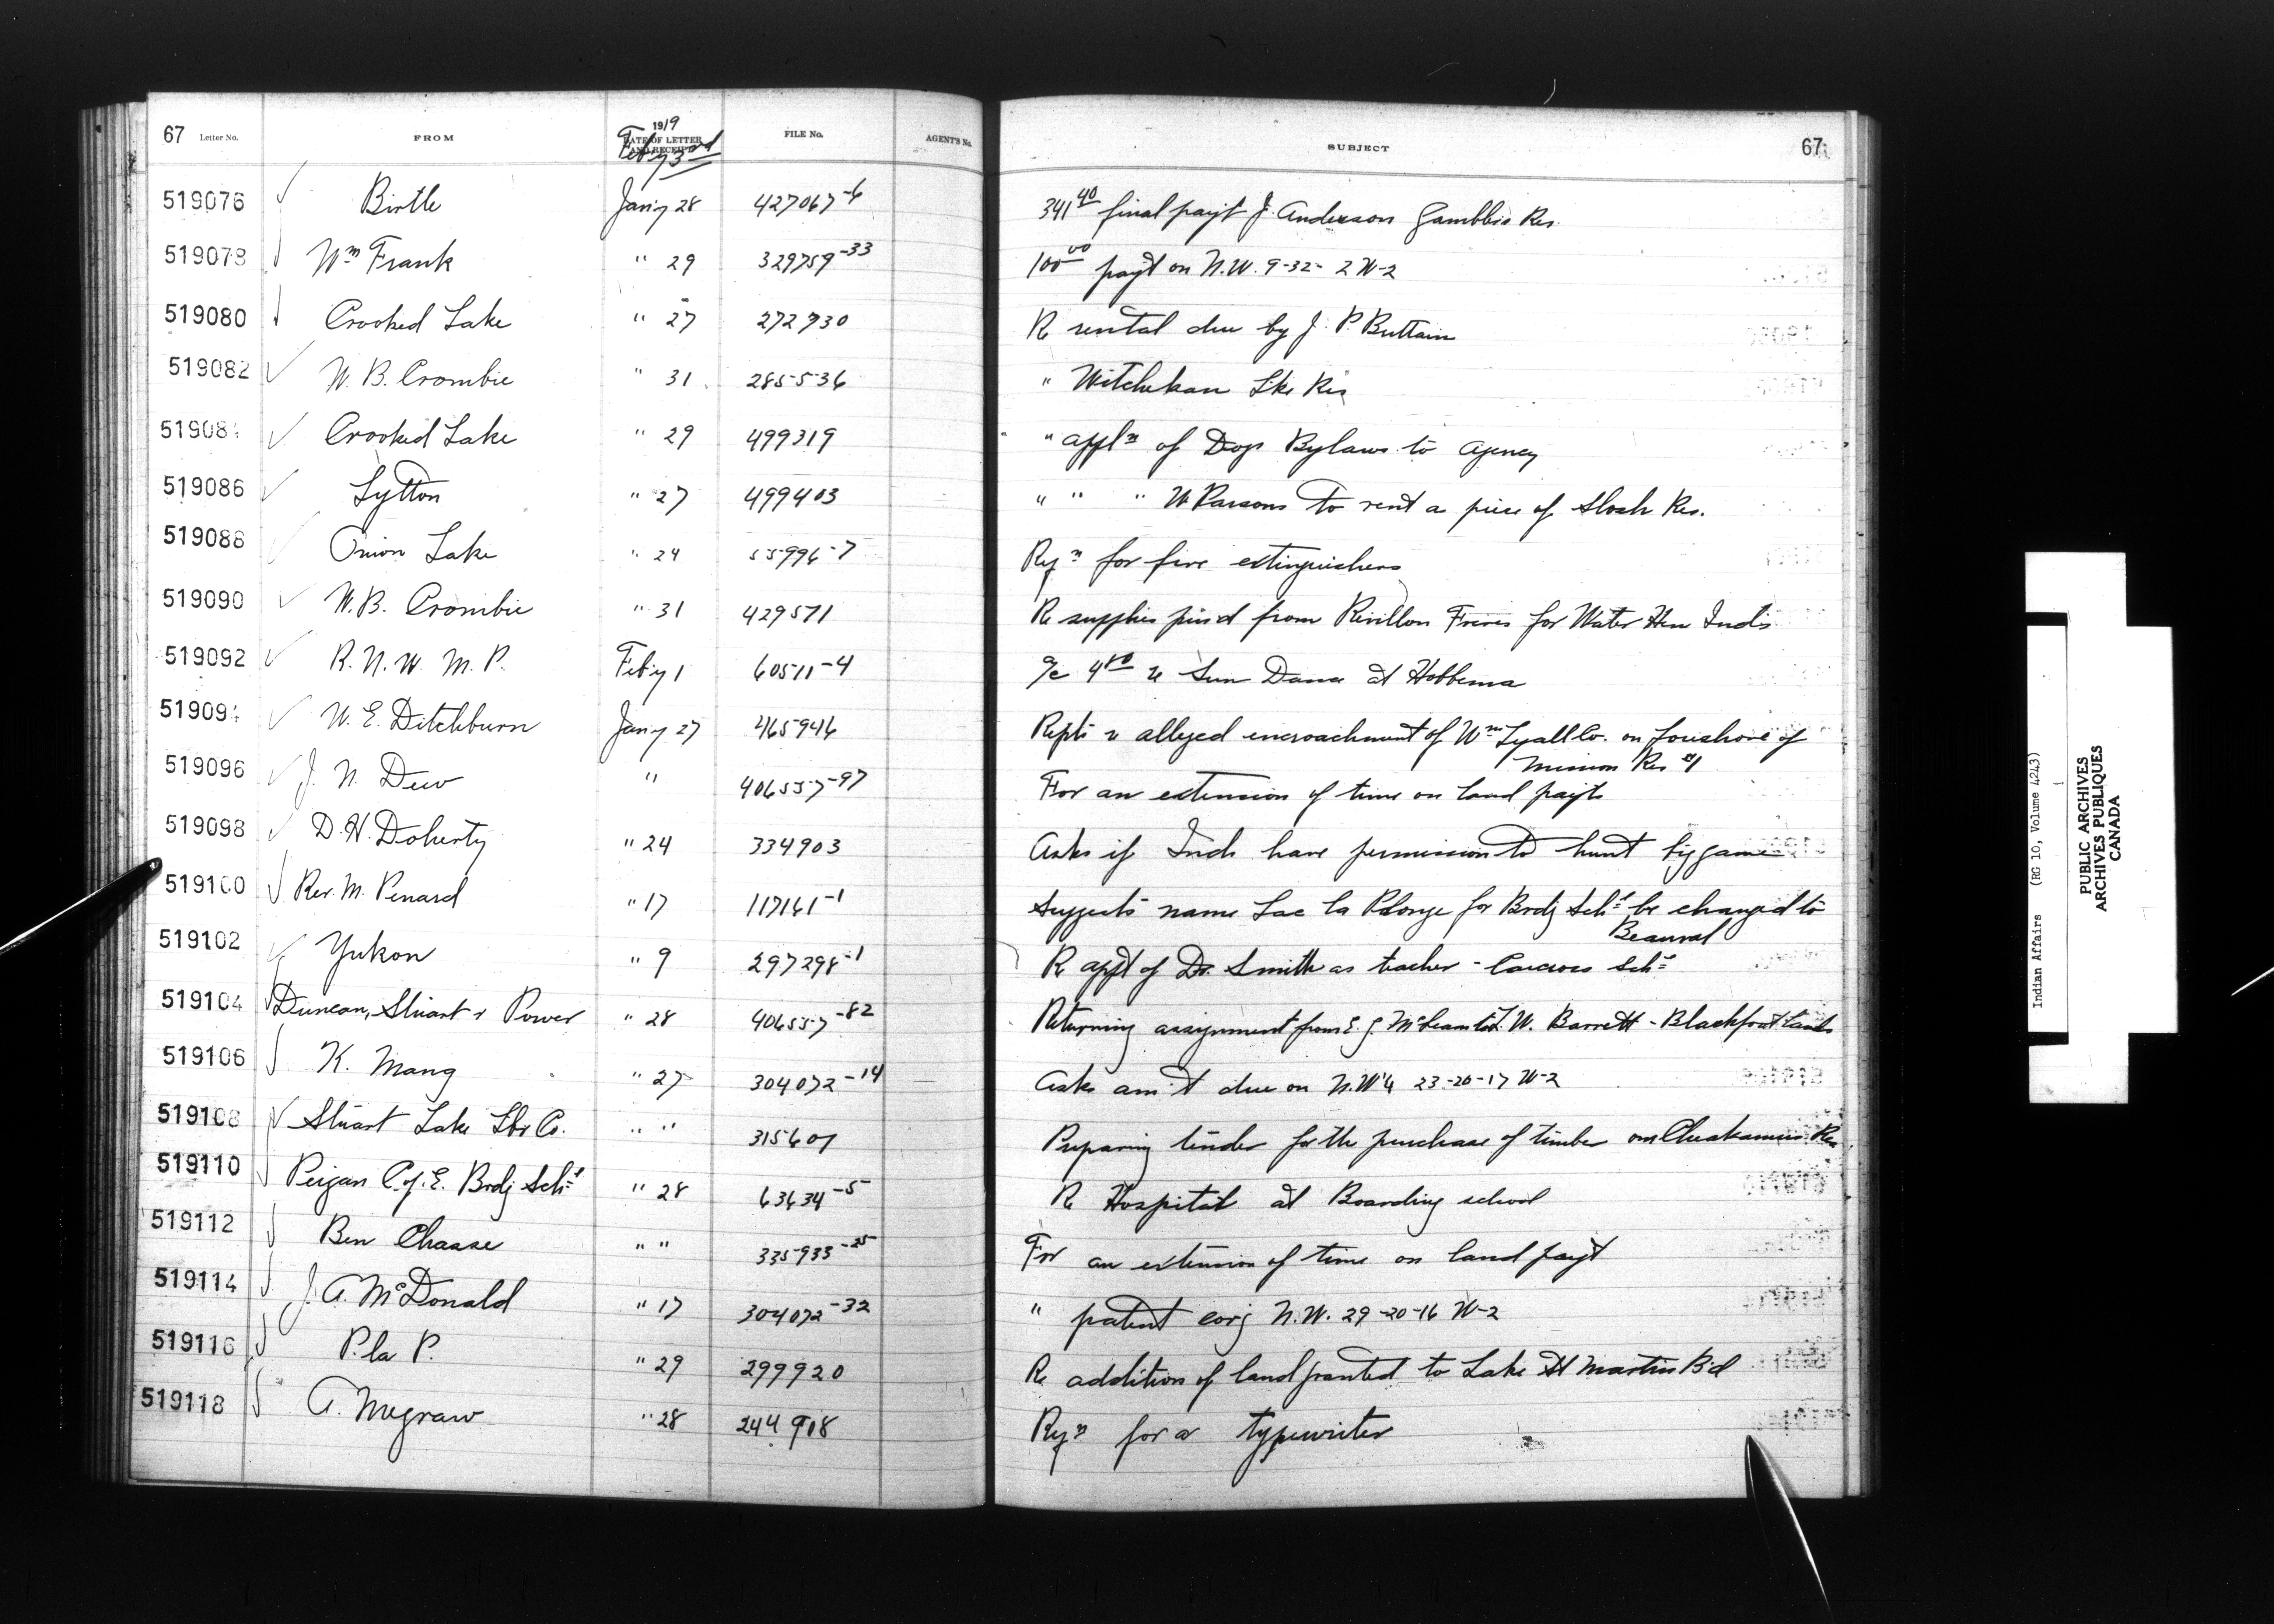 67 Letter No. FROM 1919 DATE OF LETTER AND RECEIPT Feb'y 3rd FILE No. AGENT'S No. SUBJECT 67
519076 Birtle Jan'y 28 427067-6 341.40 final payt J. Anderson Gamblers Res.
519078 Wm Frank " 29 329759-33 100.00 payt on N.W. 9-32-2 W-2
519080 Crooked Lake " 27 272930 Re rental due by J. P. Buttain
519082 W. B. Crombie " 31 285536 " Witchekan Lke Res
51908 Crooked Lake " 29 499319 " appln of Dog Bylaws to Agency
519086 Lytton " 27 499403 " " " W Parsons to rent a piece of Slosh Res.
519088 Onion Lake " 24 55996-7 Reqn for fire extinguishers
519090 W. B. Crombie " 31 429571 Re supplies pur'd from Revillon Freres for Water Hen Inds
519092 R. N. W. M. P. Feb'y 1 60511-4 a/c 4.50 re Sun Dance at Hobbema
519094 W. E. Ditchburn Jan'y 27 465946 Repts re alleged encroachment of Wm Lyall Co. on foreshore of
Mission Res #1
519096 J. N. Dew " 406557-97 For an extension of time on land payts
519098 D. H. Doherty " 24 334903 Asks if Inds have permission to hunt big game
519100 Rev. M. Penard " 17 117161-1 Suggests name Lac la Plonge for Brdg Schl be changed to
Beauval
519102 Yukon " 9 297298-1 Re appt of Dr. Smith as teacher - Carcross Schl
519104 Duncan, Stuart & Power " 28 406557-82 Returning assignment from E. J. McLean to L. W. Barrett - Blackfoot lands
519106 K. Mang " 27 304072-14 Asks am't due on N.W¼ 23-20-17 W-2
519108 Stuart Lake Lbr Co. " " 315607 Preparing tender for the purchase of timber on Cheakamus Res
519110 Peigan C. of E. Brdg Schl " 28 63634-5 Re Hospital at Boarding school
519112 Ben Chasse " " 335933-25 For an extension of time on land payt
519114 J. A. McDonald " 17 304072-32 " patent covg N.W. 29-20-16 W-2
519116 P. la P. " 29 299920 Re addition of land granted to Lake St Martins B'd
519118 A. Megraw " 28 244908 Reqn for a typewriter
Indian Affairs (RG 10, Volume 4243)
PUBLIC ARCHIVES
ARCHIVES PUBLIQUES
CANADA